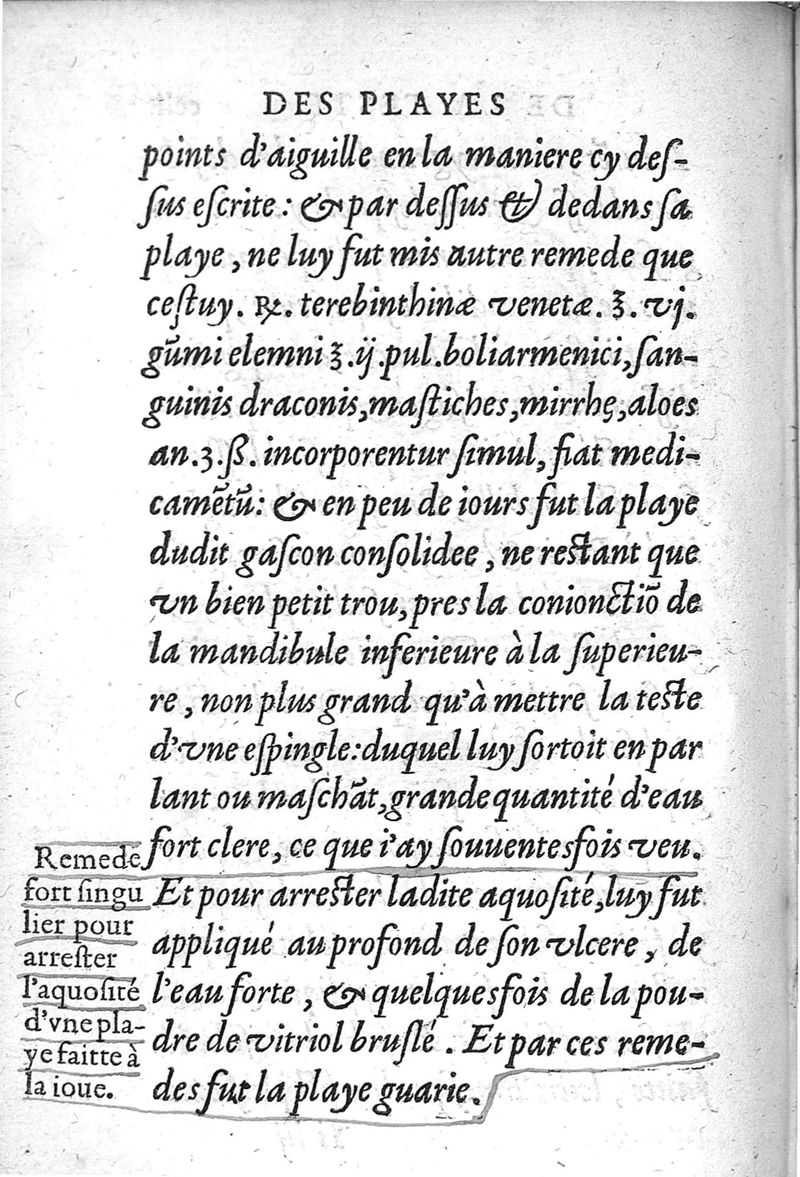 DES PLAYES
points d'aiguille en la maniere cy deſ-
ſus eſcrite : & par deſſus & dedans ſa
playe, ne luy fut mis autre remede que
ceſtuy. ℞. terebinthinæ venetæ. ℥. vj.
gūmi elemni ℥.ij.pul.boliarmenici,ſan-
guinis draconis,maſtiches,mirrhę,aloes
an.ʒ.ß. incorporentur ſimul, fiat medi-
camētū: & en peu de iours fut la playe
dudit gaſcon conſolidee, ne reſtant que
vn bien petit trou,pres la conionctiō de
la mandibule inferieure à la ſuperieu-
re, non plus grand qu'à mettre la teſte
d'vne eſpingle:duquel luy ſortoit en par
lant ou maſchāt,grande quantité d'eau
fort clere, ce que i'ay ſouuentesfois veu.
Et pour arreſter ladite aquoſité,luy fut
appliqué au profond de ſon vlcere, de
l'eau forte, & quelquesfois de la pou-
dre de vitriol bruſlé. Et par ces reme-
des fut la playe guarie.
Remede
fort ſingu
lier pour
arreſter
l'aquoſité
d'vne pla-
ye faitte à
la ioue.